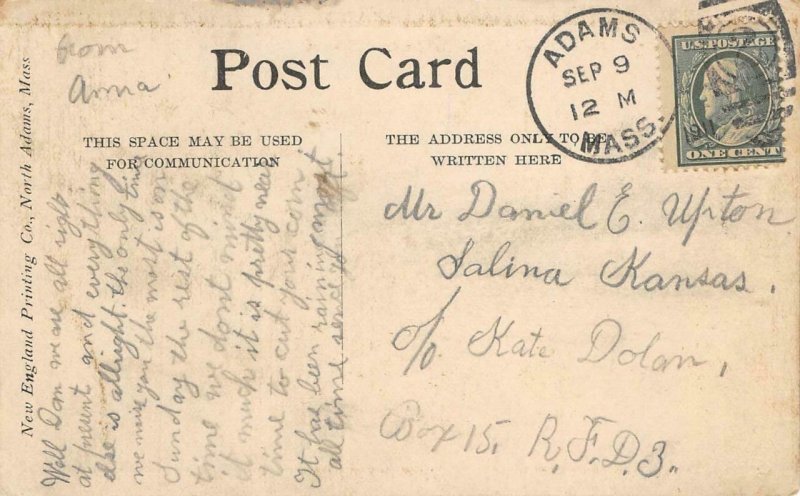 from
Anna
Post Card
ADAMS
SEP 9
12 M
MASS.
1911
U.S. POSTAGE
ONE CENT
THIS SPACE MAY BE USED
FOR COMMUNICATION
THE ADDRESS ONLY TO BE
WRITTEN HERE
New England Printing Co., North Adams, Mass
Well Dan we are all right
at present and everything
else is allright. the only time
we miss you the most is on
Sunday the rest of the
time we dont mind
it much it is pretty near
time to cut your corn
It has been raining most
all time since you
Mr Daniel E. Upton
Salina Kansas.
c/o Kate Dolan,
Box 15, R.F.D.3.